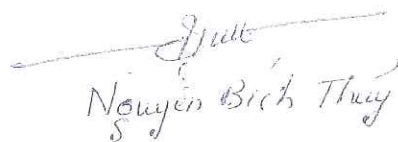 Nguyễn Bích Thuý